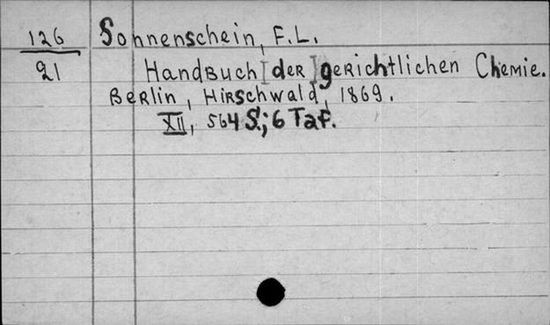 126
21
Sonnenschein, F.L.
Handbuch [der] gerichtlichen Chemie.
Berlin, Hirschwald, 1869.
XII, 564 S.; 6 Taf.